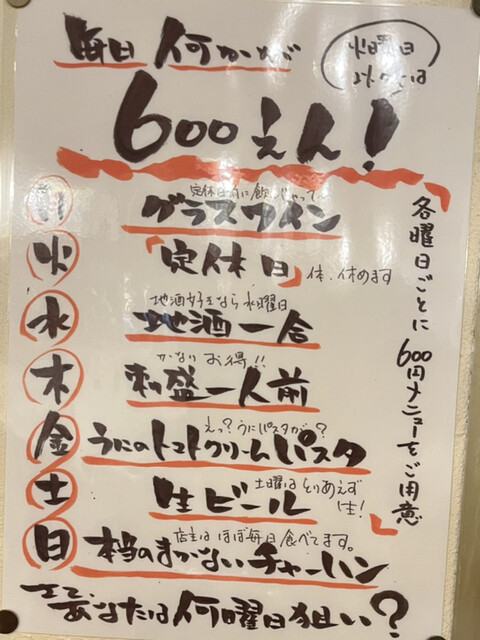 毎日 何かが
火曜日
以外は
600えん!
各曜日ごとに600円メニューをご用意
月
定休日前に飲んじゃって〜
グラスワイン
火
「定休日」
体、休めます
水
地酒好きなら水曜日
地酒一合
木
かなりお得!!
刺盛一人前
金
えっ?うにパスタが・・?
うにのトマトクリームパスタ
土
土曜はとりあえず
生!
生ビール
日
店主はほぼ毎日食べてます。
本当のまかないチャーハン
さて、あなたは何曜日狙い?